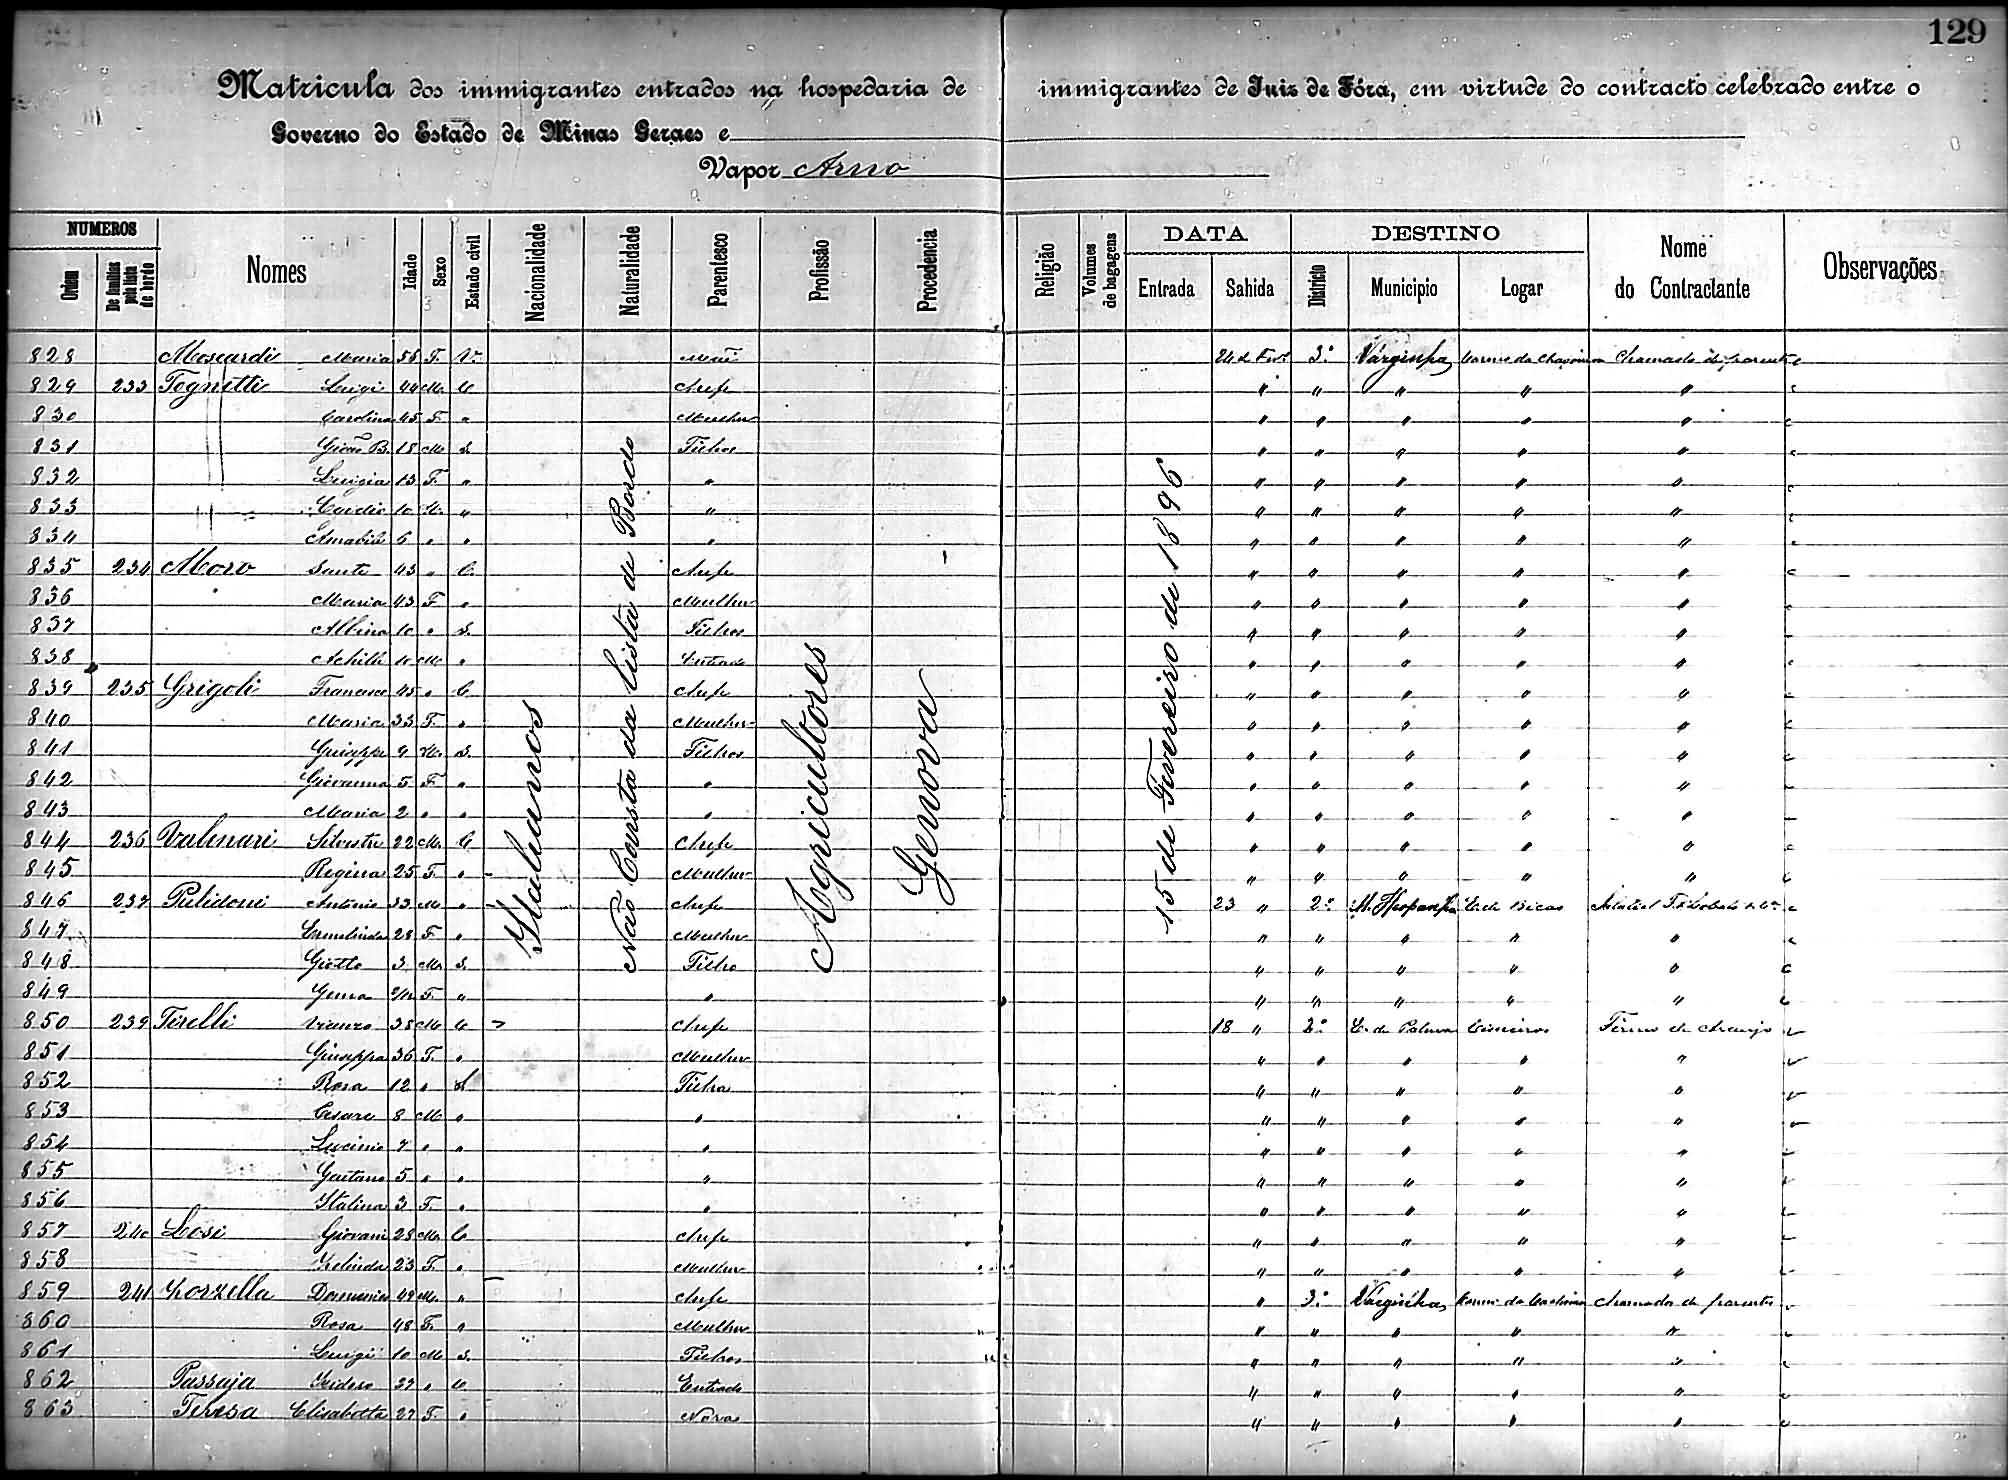 129
Matricula dos immigrantes entrados na hospedaria de immigrantes de Juiz de Fóra, em virtude do contracto celebrado entre o
Governo do Estado de Minas Geraes e
Vapor Arno
NUMEROS DATA DESTINO
Ordem De familias pela lista de bordo Nomes Idade Sexo Estado civil Nacionalidade Naturalidade Parentesco Profissão Procedencia Religião Volumes de bagagens Entrada Sahida Districto Municipio Logar Nome do Contractante Observações
Italianos
Não Consta da Lista de Bordo
Agricultores
Genova
15 de Fevereiro de 1896
828 Moscardi Maria 55 F. V. Mãe 3º Varginha
829 233 Tognetti Luigi 44 M. C. Chefe " " " " "
830 Carolina 45 F. " Mulher " " " " "
831 18 M S. Filhos " " " " "
832 Luigia 13 F. " " " " " " "
833 10 M. " " " " " " "
834 6 " " " " " " " "
835 234 Moro Sante 43 " C. Chefe " " " " "
836 Maria 43 F " Mulher " " " " "
837 Albina 10 " S. Filhos " " " " "
838 Achille 10 M " " " " " "
839 235 Grigoli Francesco 45 " C. Chefe " " " " "
840 Maria 33 F. " Mulher " " " " "
841 Guiseppe 9 M. S. Filhos " " " " "
842 Giovanna 5 F. " " " " " " "
843 Maria 2 " " " " " " " "
844 236 Silvestre 22 M. C. Chefe " " " " "
845 Regina 25 F. " Mulher " " " " "
846 237 Pulidoni Antonio 33 M " Chefe 23 " 2º M. Hespanha E. de Bicas
847 28 F " Mulher " " " " "
848 Giotto 3 M. S. Filho " " " " "
849 F. " " " " " " "
850 239 Tirelli 38 M C Chefe 18 " 2º C. da Palma Cisneiros
851 Giuseppa 36 F. " Mulher " " " " "
852 Rosa 12 " S Filha " " " " "
853 Cesare 8 M " " " " " " "
854 7 " " " " " " " "
855 Gaetano 5 " " " " " " " "
856 Italina 3 F. " " " " " " "
857 240 Losi Giovani 28 M. C. Chefe " " " " "
858 23 F. " Mulher " " " " "
859 241 Domenico 49 M. " Chefe " 3º Varginha chamados de parentes
860 Rosa 48 F. " Mulher " " " " "
861 Luigi 10 M S. Filhos " " " " "
862 Passaja Isidoro 37 " C. " " " " "
863 Teresa Elisabetta 27 F. " " " " " "